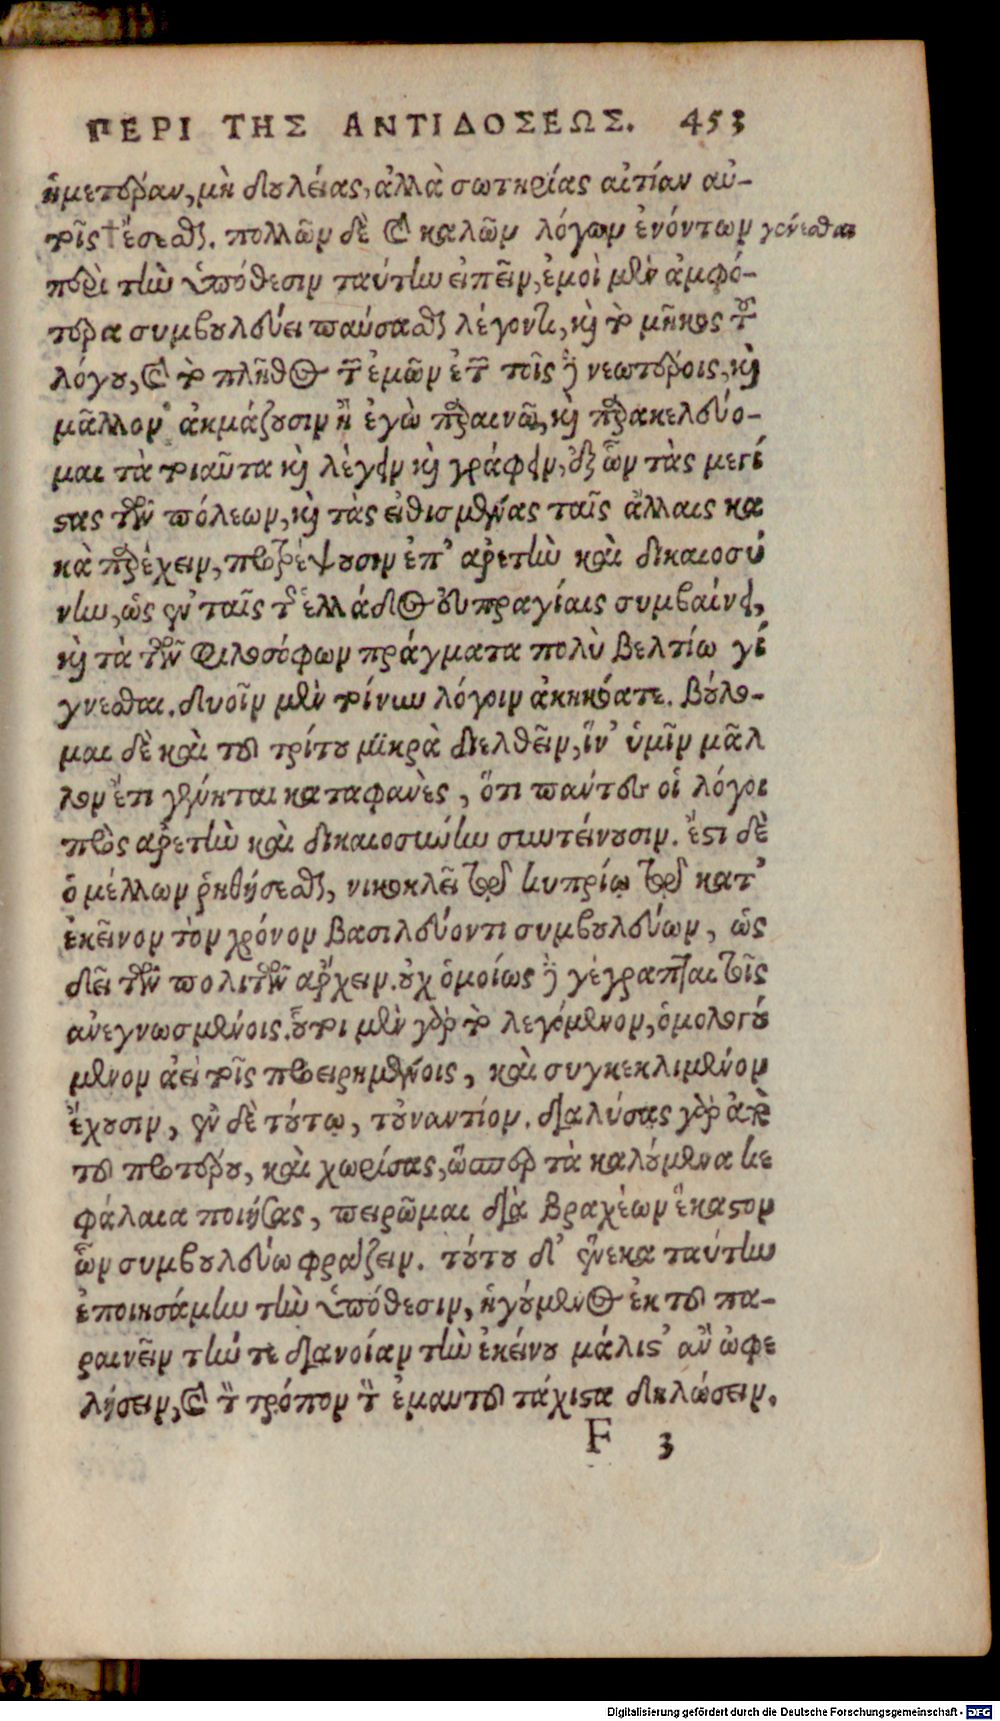 ΠΕΡΙ ΤΗΣ ΑΝΤΙΔΟΣΕΩΣ. 453
ἡμετέραν, μὴ δουλείας, ἀλλὰ σωτηρίας αἰτίαν αὐ-
τοῖς † ἔσεσθαι. πολλῶν δὲ καὶ καλῶν λόγων ἐνόντων γενέσθαι
περὶ τὴν ὑπόθεσιν ταύτην εἰπεῖν, ἐμοὶ μὲν ἀμφό-
τερα συμβουλεύει παύσασθαι λέγοντι, καὶ τὸ μῆκος τοῦ
λόγου, καὶ τὸ πλῆθος τῶν ἐμῶν ἐτῶν τοῖς δὲ νεωτέροις, καὶ
μᾶλλον ἀκμάζουσιν ἢ ἐγὼ παραινῶ, καὶ παρακελεύο-
μαι τὰ τοιαῦτα καὶ λέγειν καὶ γράφειν, ἐξ ὧν τὰς μεγί
στας τῶν πόλεων, καὶ τὰς εἰθισμένας ταῖς ἄλλαις κα
κὰ παρέχειν, προτρέψουσιν ἐπ' ἀρετὴν καὶ δικαιοσύ
νην, ὡς ἐν ταῖς τῆς ἑλλάδος εὐπραγίαις συμβαίνει,
καὶ τὰ τῶν φιλοσόφων πράγματα πολὺ βελτίω γί
γνεσθαι. δυοῖν μὲν τοίνυν λόγοιν ἀκηκόατε. βούλο-
μαι δὲ καὶ τοῦ τρίτου μικρὰ διελθεῖν, ἵν' ὑμῖν μᾶλ
λον ἔτι γένηται καταφανὲς, ὅτι πάντες οἱ λόγοι
πρὸς ἀρετὴν καὶ δικαιοσύνην συντείνουσιν. ἔστι δὲ
ὁ μέλλων ῥηθήσεσθαι, νικοκλεῖ τῷ κυπρίῳ τῷ κατ'
ἐκεῖνον τὸν χρόνον βασιλεύοντι συμβουλεύων, ὡς
δεῖ τῶν πολιτῶν ἄρχειν. οὐχ ὁμοίως δὲ γέγραπται τοῖς
ἀνεγνωσμένοις. οὗτοι μὲν γὰρ τὸ λεγόμενον, ὁμολογού
μενον ἀεὶ τοῖς προειρημένοις, καὶ συγκεκλιμένον
ἔχουσιν, ἐν δὲ τούτῳ, τοὐναντίον. διαλύσας γὰρ ἀπὸ
τοῦ προτέρου, καὶ χωρίσας, ὥσπερ τὰ καλούμενα κε
φάλαια ποιήσας, πειρῶμαι διὰ βραχέων ἕκαστον
ὧν συμβουλεύω φράζειν. τούτου δ' ἕνεκα ταύτην
ἐποιησάμην τὴν ὑπόθεσιν, ἡγούμενος ἐκ τοῦ πα-
ραινεῖν τήν τε διανοίαν τὴν ἐκείνου μάλιστ' ἂν ὠφε
λήσειν, καὶ τὸν τρόπον τὸν ἐμαυτοῦ τάχιστα δηλώσειν.
F 3
Digitalisierung gefördert durch die Deutsche Forschungsgemeinschaft - DFG